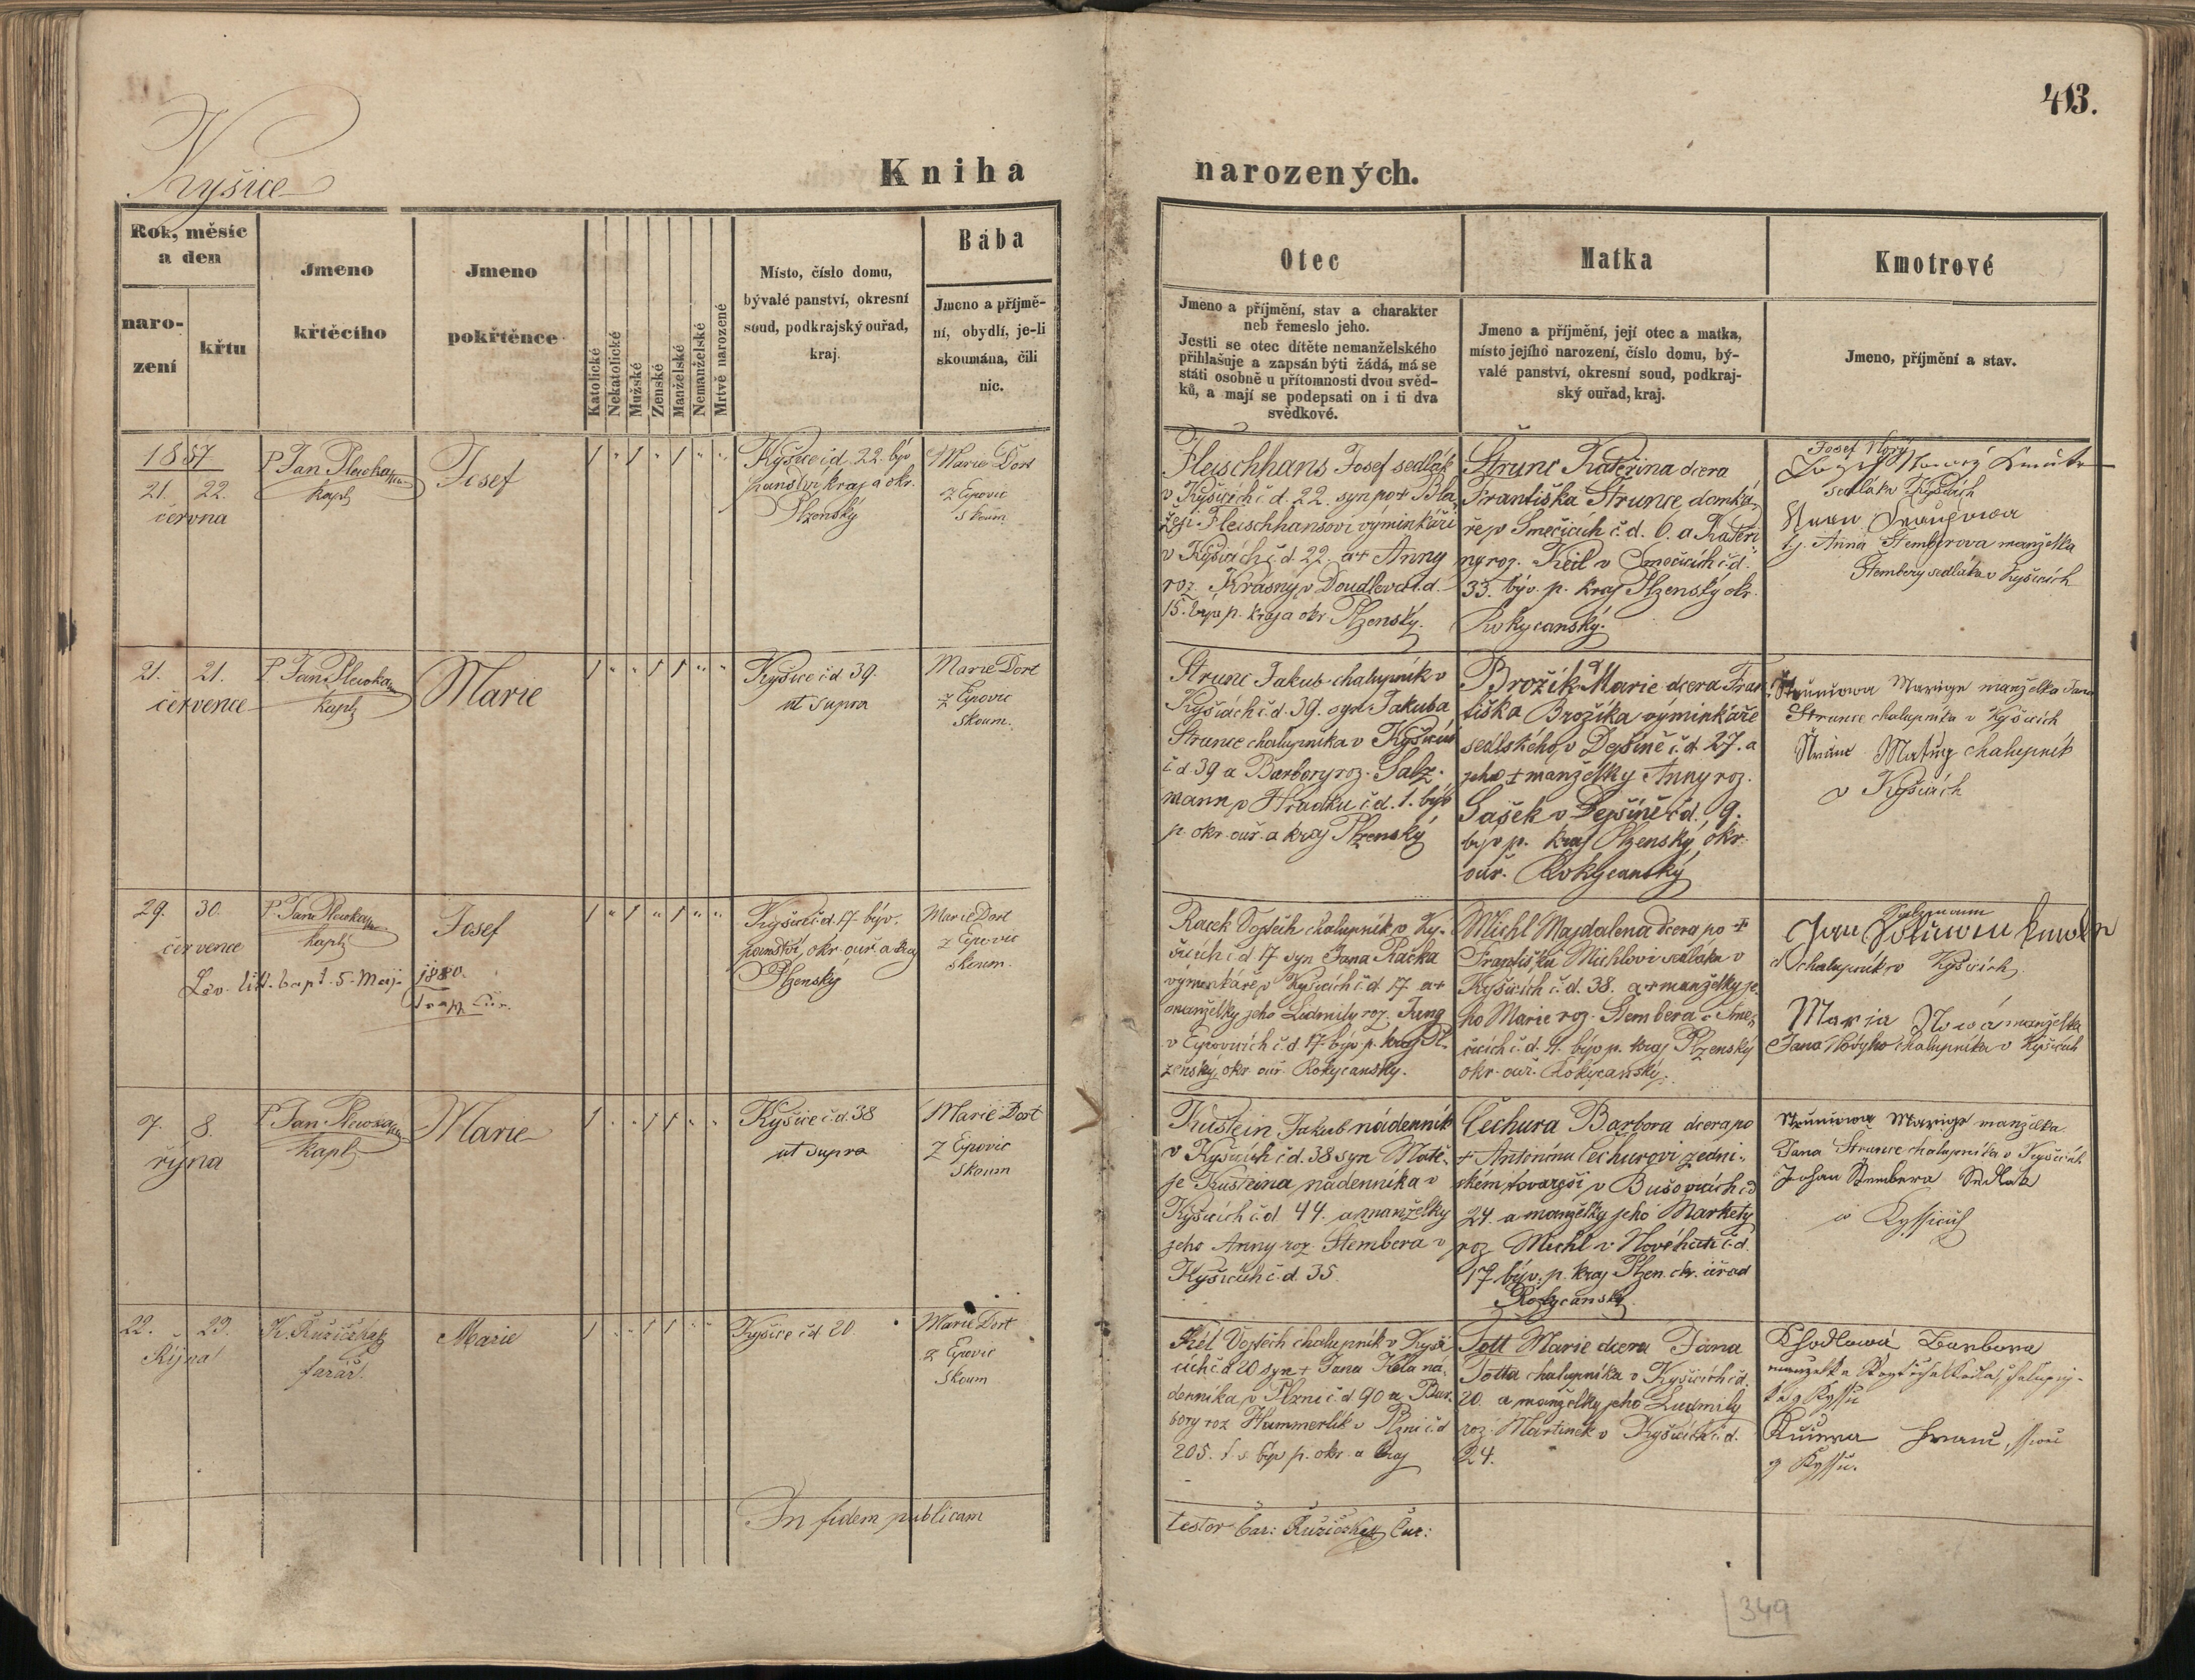 413.
Kyšice
Kniha narozených.
Rok, měsíc
a den
naro-
zení
křtu
Jmeno
křtěcího
Jmeno
pokřtěnce
Katolické
Nekatolické
Mužské
Ženské
Manželské
Nemanželské
Mrtvě narozené
Místo, číslo domu,
bývalé panství, okresní
soud, podkrajský ouřad,
kraj.
Bába
Jmeno a příjmě-
ní, obydlí, je-li
skoumána, čili
nic.
Otec
Jméno a příjmění, stav a charakter
neb řemeslo jeho.
Jestli se otec dítěte nemanželského
přihlašuje a zapsán býti žádá, má se
státi osobně u přítomnosti dvou svěd-
ků, a mají se podepsati on i ti dva
svědkové.
Matka
Jmeno a příjmění, její otec a matka,
místo jejího narození, číslo domu, bý-
valé panství, okresní soud, podkraj-
ský ouřad, kraj.
Kmotrové
Jmeno, příjmění a stav.
1857
21. 22.
června
P. Jan Plewka
kapl.
Josef
1 " 1 " 1 " "
Kyšice č.d. 22. býv
panství, kraj a okr.
Plzenský
Marie Dort
z Ejpovic
skoum.
Fleischhans Josef sedlák
v Kyšicích č.d. 22. syn po + Bla-
žeji Fleischhansovi výminkáři
v Kyšicích č.d. 22. a + Anny
roz. Krásný v Doudlevci č.d.
15. býv. p. kraj a okr. Plzenský.
Štrunc Kateřina dcera
Františka Štrunce, domká-
ře v Smečicích č.d. 6. a Kateři-
ny roz. Keil v Smečicích č.d.
33. býv. p. kraj Plzenský okr.
Rokycanský.
Josef Nový
sedlák v Kyšicích
tj. Anna Štemberova manželka
Štembery sedláka v Kyšicích
21. 21.
července
P. Jan Plewka
kapl.
Marie
1 " " 1 1 " "
Kyšice č.d. 39.
ut supra
Marie Dort
z Ejpovic
skoum.
Štrunc Jakub chalupník v
Kyšicích č.d. 39. syn Jakuba
Štrunce chalupníka v Kyšicích
č.d. 39 a Barbory roz. Salz-
mann v Hrádku č.d. 1. býv
p. okr. ouř. a kraj Plzenský
Brožík Marie dcera Fran-
tiška Brožíka výminkáře
sedlského v Dejšině č.d. 27. a
jeho + manželky Anny roz.
Gašek v Dejšině č.d. 9.
býv. p. kraj Plzenský, okr.
ouř. Rokycanský
Štruncowa Marige manželka Jana
Štrunce chalupníka v Kyšicích
Štrunc Matieg chalupník
v Kyšicích
29. 30.
července
P. Jan Plewka
kapl.
Josef
1 " 1 " 1 " "
Kyšice č.d. 17. býv.
panství, okr. ouř. a kraj
Plzenský
Marie Dort
z Ejpovic
skoum.
Lev. litt. bapt. 5. Maji 1880.
Racek Vojtěch chalupník v Ky-
šicích č.d. 17 syn Jana Račka
výminkáře v Kyšicích č.d. 17. a +
manželky jeho Lidmily roz. Jung
v Ejpovicích č.d. 17. býv. p. kraj Pl-
zenský, okr. ouř. Rokycanský.
Michl Majdalena dcera po +
Františku Michlovi sedláku v
Kyšicích č.d. 38. a + manželky je-
ho Marie roz. Štembera v Sme-
čicích č.d. 4. býv. p. kraj Plzenský
okr. ouř. Rokycanský.
Salzmann
chalupník v Kyšicích
Marja Nowá manželka
Jana Nového chalupníka v Kyšicích
7. 8.
října
P. Jan Plewka
kapl.
Marie
1 " " 1 1 " "
Kyšice č.d. 38
ut supra
Marie Dort
z Ejpovic
skoum
Kustein Jakub nádenník
v Kyšicích č.d. 38 syn Matě-
je Kusteina nádenníka v
Kyšicích č.d. 44. a manželky
jeho Anny roz. Štembera v
Kyšicích č.d. 35.
Čechura Barbora dcera po
+ Antonínu Čechurovi zedni-
ckém tovaryši v Bušovicích č.d.
24. a manželky jeho Markety
roz. Michl v Nové huti č.d.
17 býv. p. kraj Plzen. okr. úřad
Rokycanský.
Štruncowa Marige manželka
Jana Štrunce chalupníka v Kyšicích
Johan Štembera Sedlak
w Kyssicich
22. 23.
Října
K. Růžiczka
farář.
Marie
1 " " 1 1 " "
Kyšice č.d. 20.
Marie Dort
z Ejpovic
skoum
Kél Vojtěch chalupník v Kyši-
cích č.d. 20 syn + Jana Kéla ná-
denníka v Plzni č.d. 90 a Bar-
bory roz. Hammerlík v Plzni č.d
205. býv p. okr. a kraj
Tott Marie dcera Jana
Totta chalupníka v Kyšicích č.d.
20. a manželky jeho Ludmily
roz. Martinek v Kyšicích č.d.
24.
Barbora
In fidem publicam
testor Car: Růžiczka Cur:
349